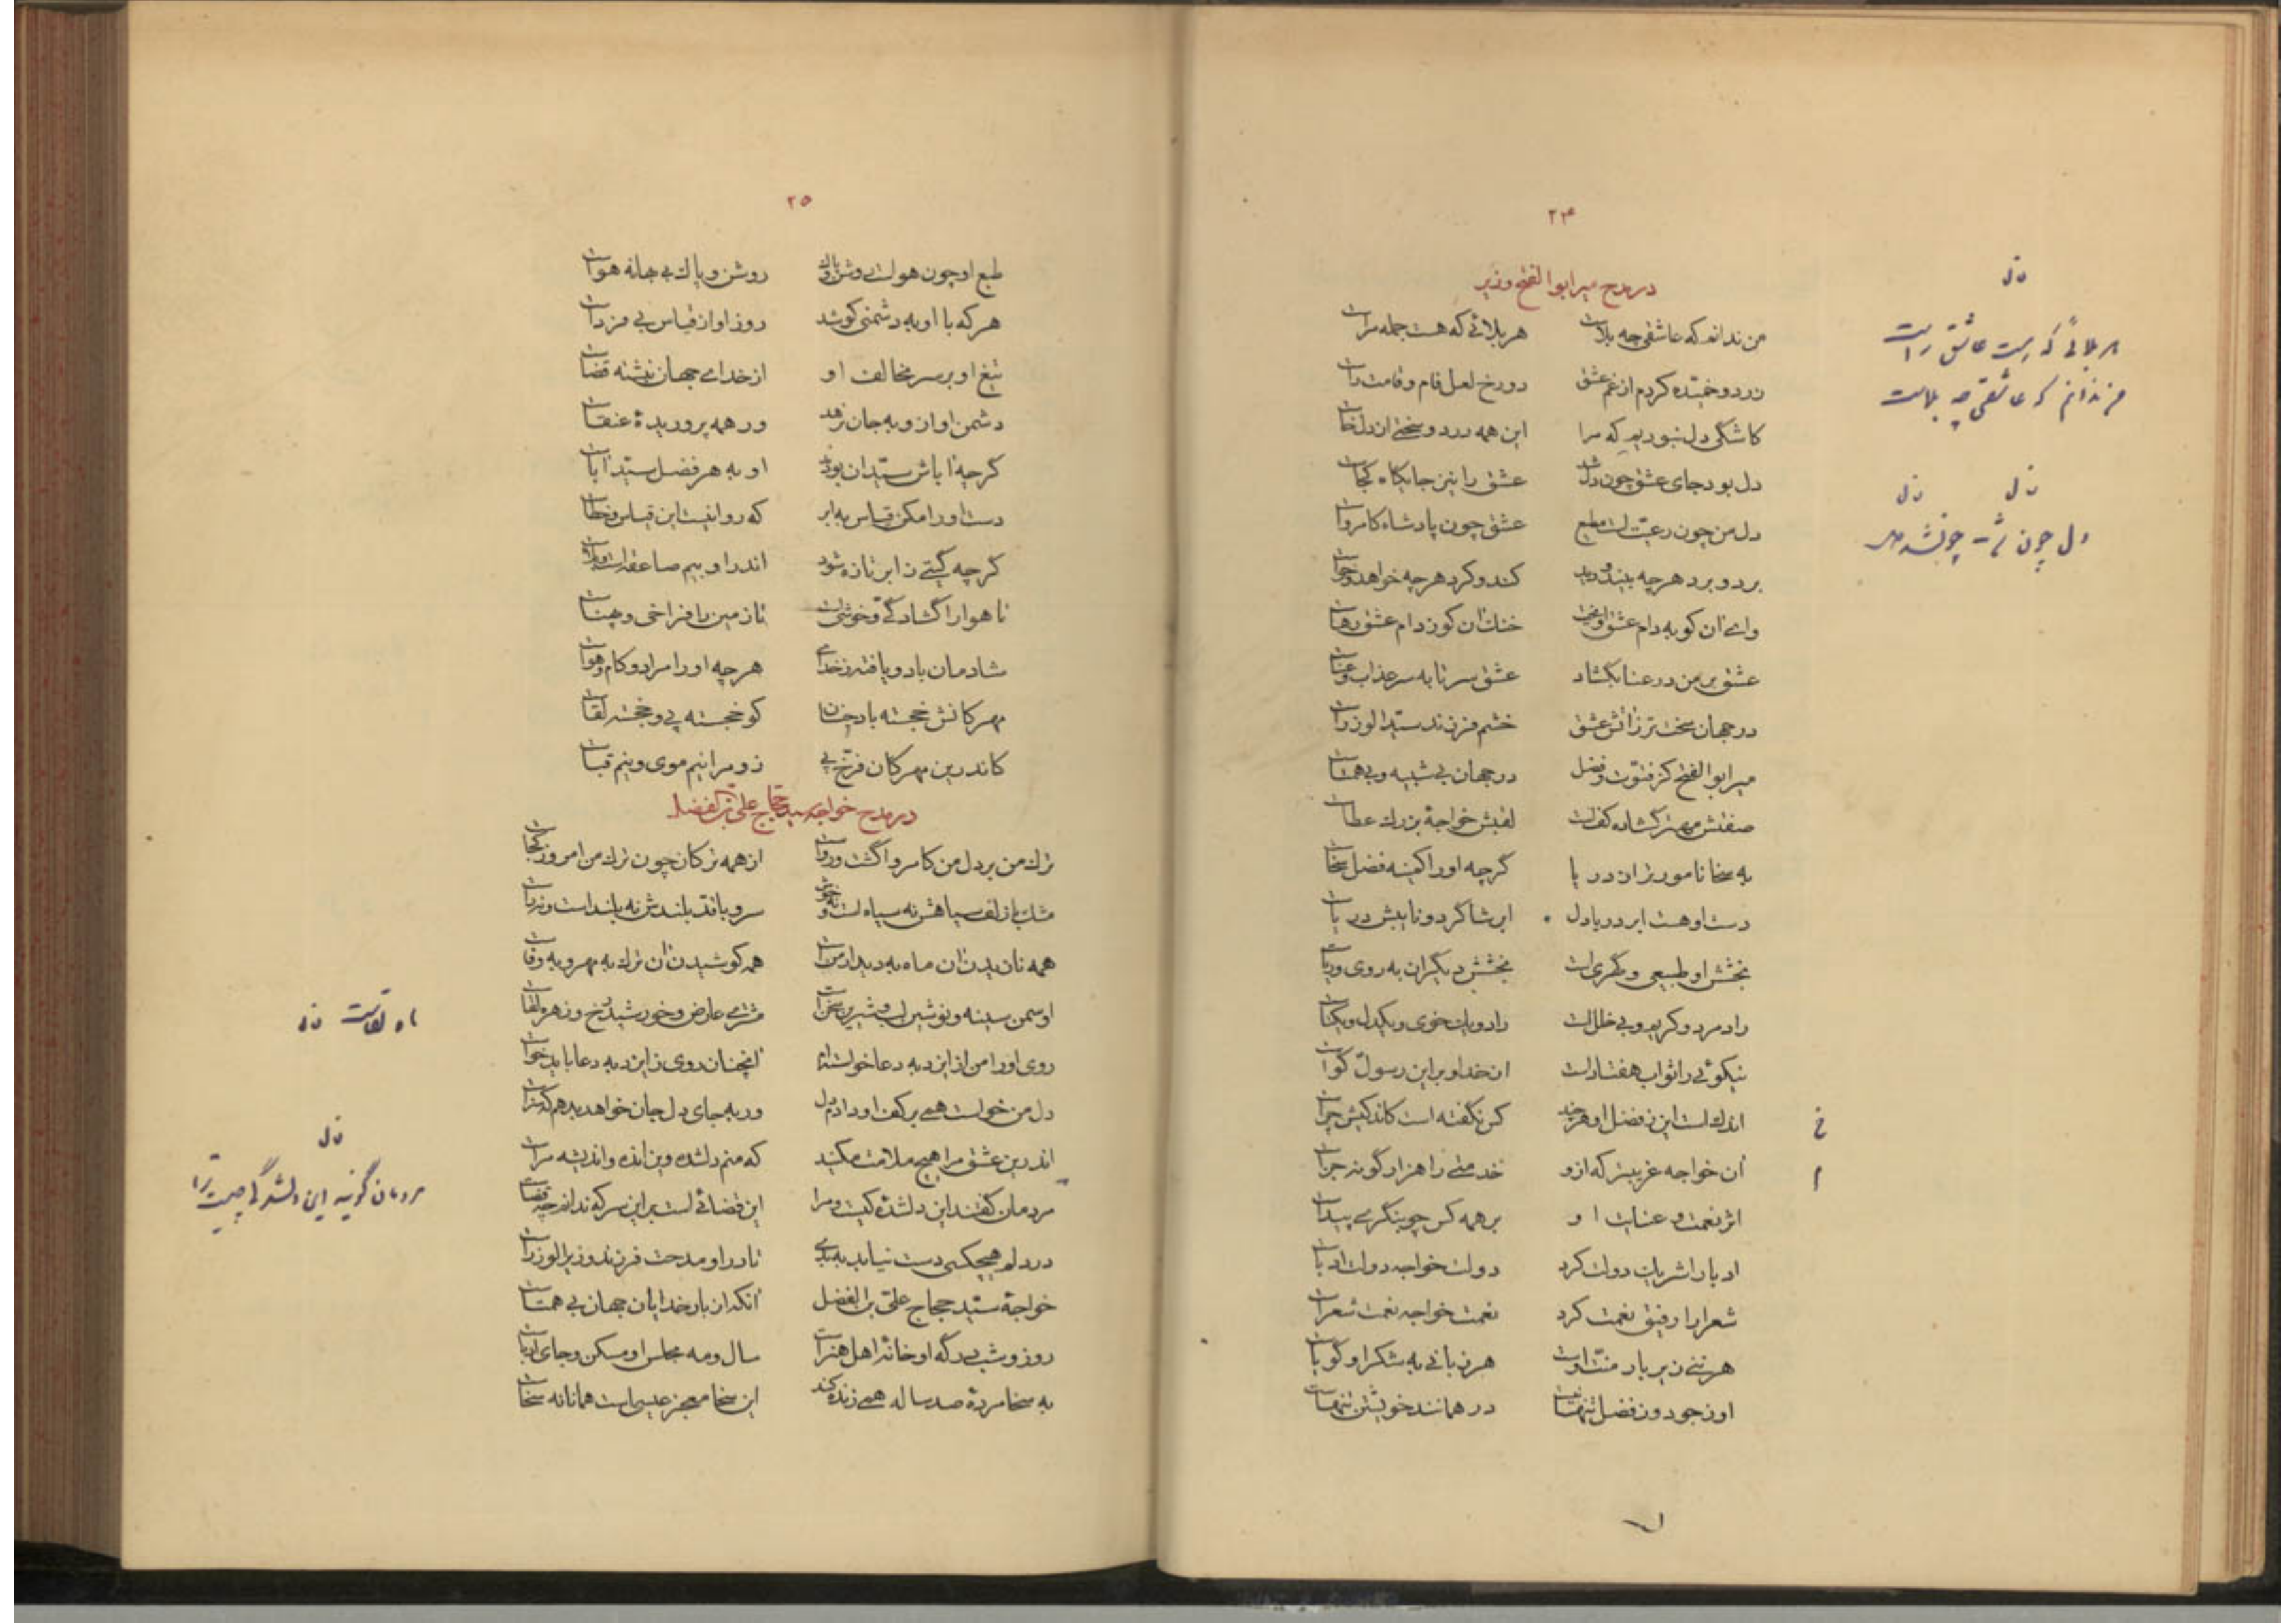 ۲۴
در مدح میر ابوالفتح وزیر
من ندانم که عاشقی چه بلاست هر بلائی که هست جمله مراست
زرد و خمیده کردم از غم عشق دو رخ لعل فام و قامت راست
کاشکی دل نبودیم که مرا این همه درد و سختی از دل خاست
دل بود جای عشق چون دل شد عشق را نیز جایگاه کجاست
دل من چون رعیت است مطیع عشق چون پادشاه کامرواست
برد و برد هرچه بیند و دید کند و کرد هرچه خواهد و خواست
وای آن کو به دام عشق آویخت خنک آن کو ز دام عشق رهاست
عشق بر من در عنا بگشاد عشق سر تا به سر عذاب و عناست
در جهان سخت تر ز آتش عشق خشم فرزند سید الوزراست
میر ابوالفتح کز فتوت و فضل در جهان بی شبیه و بی همتاست
صفتش مهتر گشاده کف است لقبش خواجهٔ بزرگ عطاست
به سخا نامورتر از دریا گرچه او را کمینه فضل سخاست
دست او هست ابر و دریا دل ابر شاگرد و نایبش دریاست
بخشش او طبیعی و گهری است بخشش دیگران به روی و ریاست
راد مرد و کریم و بی خلل است راد و یک خوی و یکدل و یکتاست
نیکوئی را ثواب هفتاد است از خدا و بر این رسول گواست
اندک است این ز فضل او هرچند کس نگفته است کاندکیش چراست
آن خواجه غریبتر که ازو خدمتی را هزار گونه جزاست
اثر نعمت و عنایت او بر همه کس چو بنگری پیداست
ادبا را شریک دولت کرد دولت خواجه دولت ادباست
شعرا را رفیق نعمت کرد نعمت خواجه نعمت شعراست
هر تنی زیر بار منت اوست هر زبانی به شکر او گویاست
او ز جود و ز فضل تنها نیست در همانند خویشتن تنهاست
ن ل
هر بلائی که هست عاشق راست
من ندانم که عاشقی چه بلاست
ن ل ن ل
خ
م
۲۵
طبع او چون هواست روشن و پاک روشن و پاک بی بهانه هواست
هر که با او به دشمنی کوشد روز او از قیاس بی فرداست
تیغ او بر سر مخالف او از خدای جهان نبشته قضاست
دشمن او ازو به جان نرهد ور همه پروریدهٔ عنقاست
گرچه آباش سیدان بودند او به هر فضل سید آباست
دست او را مکن قیاس به ابر که روا نیست این قیاس و خطاست
گرچه گیتی ز ابر تازه شود اندر او بیم صاعقه است و بلاست
تا هوا را گشادگی و خوشی است تا زمین را فراخی و پهناست
شادمان باد و یافته ز خدای هرچه او را مراد و کام و هواست
مهرگانش خجسته باد چنان کو خجسته پی و خجسته لقاست
کاندرین مهرگان فرخ پی زو مرا نیم موی و نیم قباست
در مدح خواجه سید حجاج علی بن الفضل
ترک من بر دل من کامروا گشت و رواست از همه ترکان چون ترک من امروز کجاست
مشک با زلف سیاهش نه سیاه است و نه خوش سرو با قد بلندش نه بلند است و نه راست
همه نازیدن آن ماه به دیدار منست همه کوشیدن آن ترک به مهر و به وفاست
او سمن سینه و نوشین لب و شیرین سخن است مشتری عارض و خورشید رخ و زهره لقاست
روی او را من از ایزد به دعا خواسته ام آنچنان روی ز ایزد به دعا باید خواست
دل من خواست همی بر کف او دادم دل ور به جای دل جان خواهد بدهم که سزاست
اندرین عشق مرا هیچ ملامت مکنید که منم دلشده وین انده و اندیشه مراست
مردمان گفتند این دلشده کیست و مرا این قضائی است بر این سر که ندانم چه قضاست
در دلم هیچکسی دست نیابد به بدی تا در او مدحت فرزند وزیر الوزراست
خواجهٔ سید حجاج علی بن الفضل آنکه از بار خدایان جهان بی همتاست
روز و شب درگه او خانهٔ اهل هنر است سال و مه مجلس او مسکن و جای ادباست
به سخا مردهٔ صد ساله همی زنده کند این سخا معجز عیسی است همانا نه سخاست
ماه لقاست ن ل
ن ل
مردمان گویند این دلشده